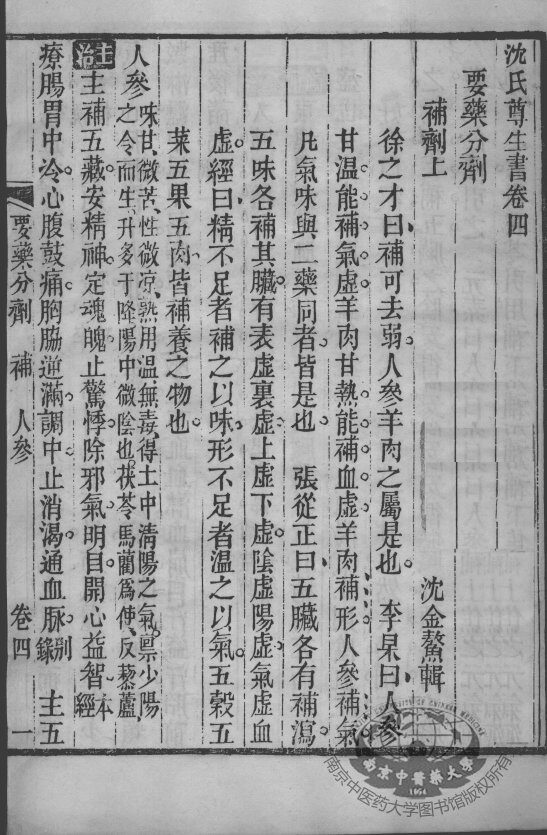 沈氏尊生書卷四
要藥分劑
補劑上
沈金鰲輯
徐之才曰補可去弱人參羊肉之屬是也 李杲曰人參
甘温能補氣虛羊肉甘熱能補血虛羊肉補形人參補氣
凡氣味與二藥同者皆是也 張從正曰五臟各有補瀉
五味各補其臟有表虛裏虛上虛下虛陰虛陽虛氣虛血
虛經曰精不足者補之以味形不足者温之以氣五穀五
菜五果五肉皆補養之物也
人參味甘微苦性微凉熟用温無毒得土中清陽之氣稟少陽
之令而生升多于降陽中微陰也茯苓馬藺爲使反藜蘆
主治主補五藏安精神定魂魄止驚悸除邪氣明目開心益智本經
療腸胃中冷心腹鼓痛胸脇逆滿調中止消渴通血脉别錄 主五
要藥分劑 補 人參 卷四 一
南京中醫藥大學
1954
南京中医药大学图书馆版权所有